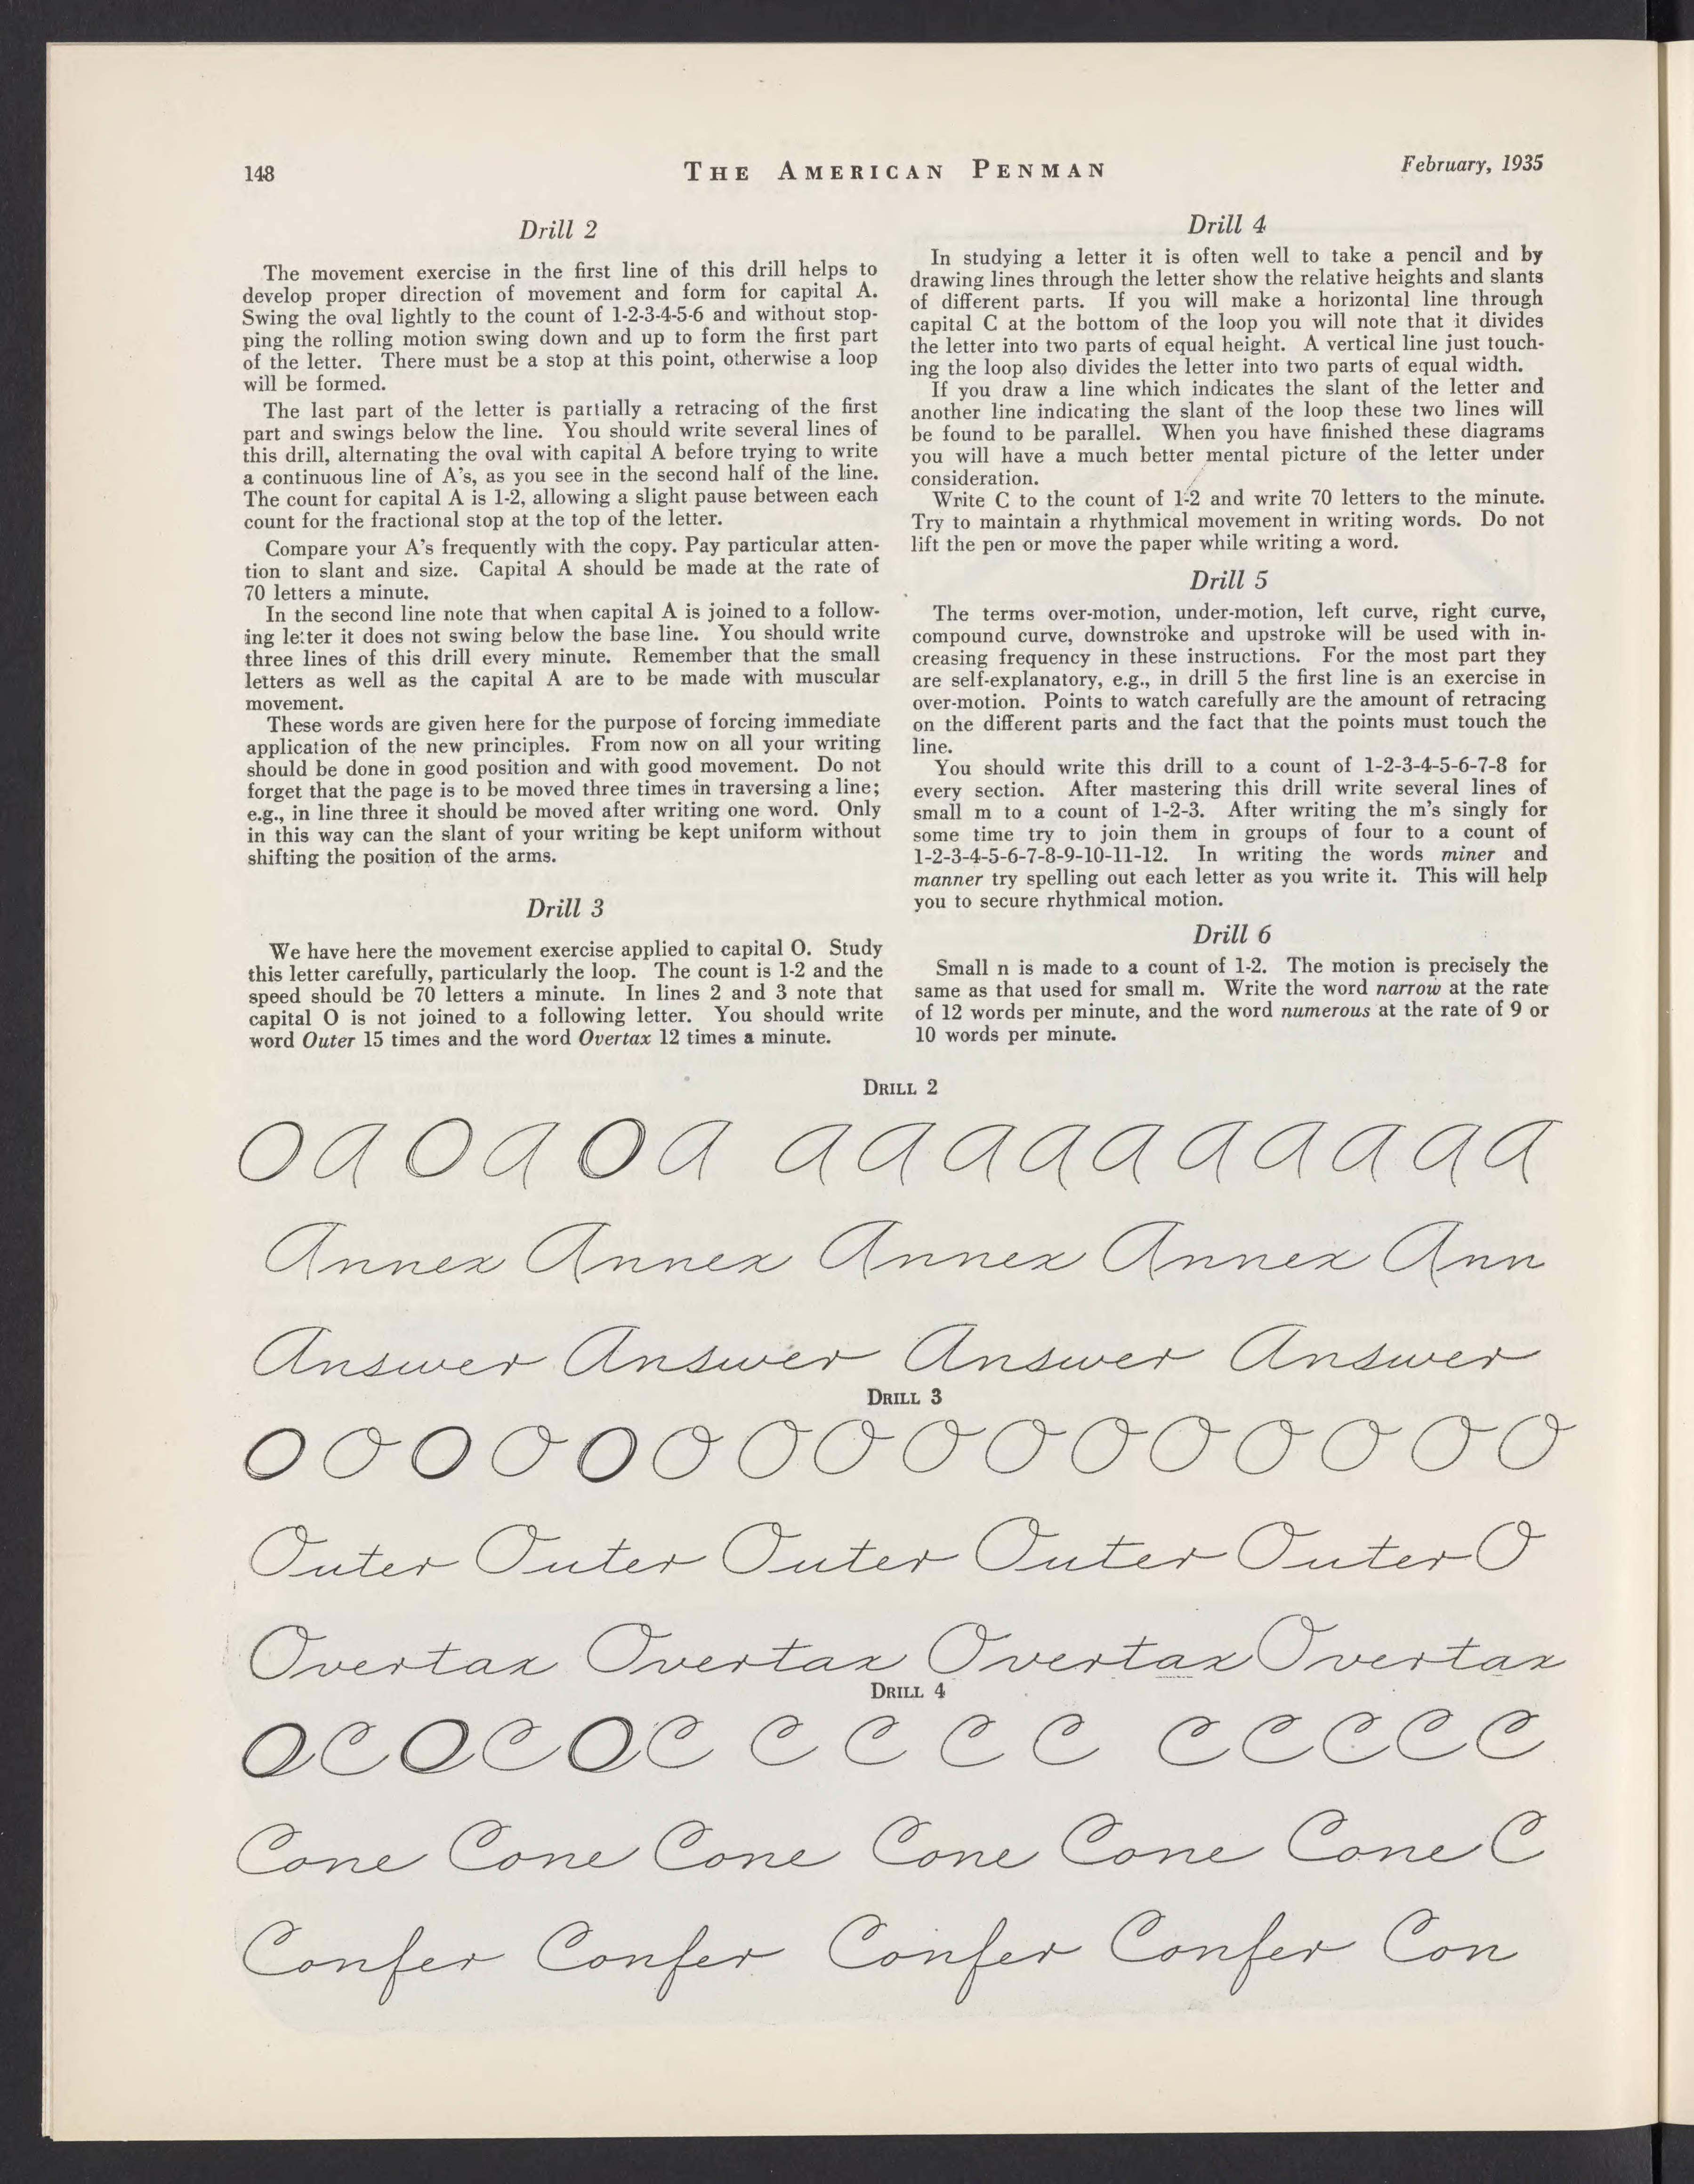 148
THE AMERICAN PENMAN
February, 1935
Drill 2
The movement exercise in the first line of this drill helps to
develop proper direction of movement and form for capital A.
Swing the oval lightly to the count of 1-2-3-4-5-6 and without stop-
ping the rolling motion swing down and up to form the first part
of the letter. There must be a stop at this point, otherwise a loop
will be formed.
The last part of the letter is partially a retracing of the first
part and swings below the line. You should write several lines of
this drill, alternating the oval with capital A before trying to write
a continuous line of A's, as you see in the second half of the line.
The count for capital A is 1-2, allowing a slight pause between each
count for the fractional stop at the top of the letter.
Compare your A's frequently with the copy. Pay particular atten-
tion to slant and size. Capital A should be made at the rate of
70 letters a minute.
In the second line note that when capital A is joined to a follow-
ing letter it does not swing below the base line. You should write
three lines of this drill every minute. Remember that the small
letters as well as the capital A are to be made with muscular
movement.
These words are given here for the purpose of forcing immediate
application of the new principles. From now on all your writing
should be done in good position and with good movement. Do not
forget that the page is to be moved three times in traversing a line;
e.g., in line three it should be moved after writing one word. Only
in this way can the slant of your writing be kept uniform without
shifting the position of the arms.
Drill 3
We have here the movement exercise applied to capital O. Study
this letter carefully, particularly the loop. The count is 1-2 and the
speed should be 70 letters a minute. In lines 2 and 3 note that
capital O is not joined to a following letter. You should write
word Outer 15 times and the word Overtax 12 times a minute.
Drill 4
In studying a letter it is often well to take a pencil and by
drawing lines through the letter show the relative heights and slants
of different parts. If you will make a horizontal line through
capital C at the bottom of the loop you will note that it divides
the letter into two parts of equal height. A vertical line just touch-
ing the loop also divides the letter into two parts of equal width.
If you draw a line which indicates the slant of the letter and
another line indicating the slant of the loop these two lines will
be found to be parallel. When you have finished these diagrams
you will have a much better mental picture of the letter under
consideration.
Write C to the count of 1-2 and write 70 letters to the minute.
Try to maintain a rhythmical movement in writing words. Do not
lift the pen or move the paper while writing a word.
Drill 5
The terms over-motion, under-motion, left curve, right curve,
compound curve, downstroke and upstroke will be used with in-
creasing frequency in these instructions. For the most part they
are self-explanatory, e.g., in drill 5 the first line is an exercise in
over-motion. Points to watch carefully are the amount of retracing
on the different parts and the fact that the points must touch the
line.
You should write this drill to a count of 1-2-3-4-5-6-7-8 for
every section. After mastering this drill write several lines of
small m to a count of 1-2-3. After writing the m's singly for
some time try to join them in groups of four to a count of
1-2-3-4-5-6-7-8-9-10-11-12. In writing the words miner and
manner try spelling out each letter as you write it. This will help
you to secure rhythmical motion.
Drill 6
Small n is made to a count of 1-2. The motion is precisely the
same as that used for small m. Write the word narrow at the rate
of 12 words per minute, and the word numerous at the rate of 9 or
10 words per minute.
DRILL 2
O A O A O A A A A A A A A A A A
Annex Annex Annex Annex Ann
Answer Answer Answer Answer
DRILL 3
O O O O O O O O O O O O O O O O
Outer Outer Outer Outer Outer O
Overtax Overtax Overtax Overtax
DRILL 4
O C O C O C C C C C C C C C C
Cone Cone Cone Cone Cone Cone C
Confer Confer Confer Confer Con